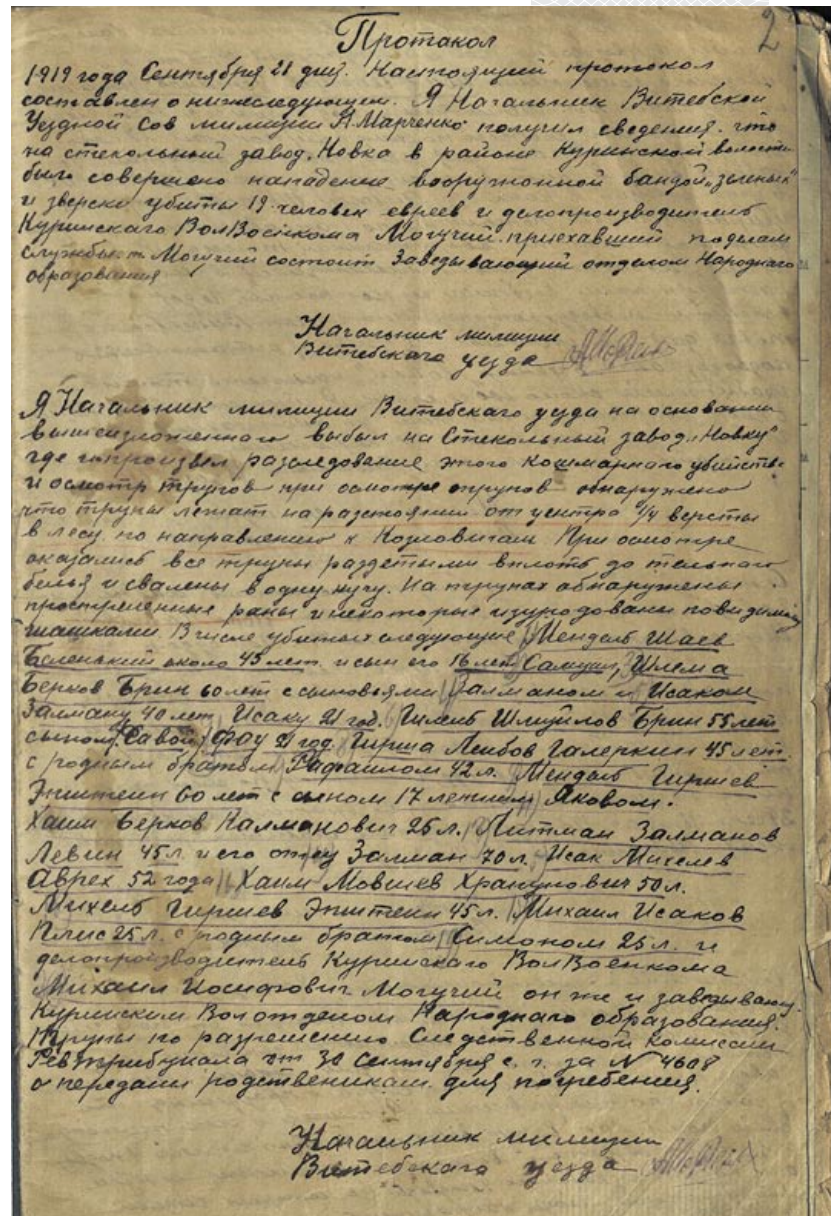 Протокол
2
1919 года Сентября 21 дня. Настоящий протокол
составлен о нижеследующем. Я Начальник Витебской
Уездной Сов милиции Я Марченко получил сведения. что
на стекольный завод „Новка в районе Куринской волости
было совершено нападение вооружонной бандой „зеленых"
и зверски убиты 19 человек евреев и делопроизводитель
Куринскаго ВолВоенкома Могучий приехавший по делам
службы. т. Могучий состоит Заведывающий отделом Народнаго
образования
Начальник милиции
Витебскаго уезда
Я Начальник милиции Витебскаго уезда на основании
вышеизложеннаго выбыл на Стекольный завод „Новку"
где и произвел разследование этого кошмарнаго убийства
и осмотр трупов при осмотре трупов обнаружено
что трупы лежат на разстоянии от центра 1/4 версты
в лесу по направлению к Козловичам При осмотре
оказались все трупы раздетыми вплоть до тельнаго
белья и свалены в одну кучу. На трупах обнаружены
простреленные раны и некоторые изуродованы повидимому
шашками В числе убитых следующие Мендель Шаев
Беленький около 45 лет и сын его 16 лет Самуил, Шлема
Берков Брин 60 лет с сыновьями Залманом и Исаком
Залману 40 лет, Исаку 21 год. Гилель Шмуйлов Брин 55 лет
сыном 21 год. Гирша Лейбов Галеркин 45 лет.
с родным братом Рафаилом 42 л. Мендель Гиршев
Эпштейн 60 лет с сыном 17 летним Яковом.
Хаим Берков Калманович 25 л. Литман Залманов
Левин 45 л. и его отец Залман 70 л. Исак Михелев
Аврех 52 года Хаим Мовшев Храпунович 50 л.
Михель Гиршев Эпштейн 45 л. Михаил Исаков
Плис 25 л. с родным братом Симоном 25 л. и
делопроизводитель Куринскаго ВолВоенкома
Михаил Иосифович Могучий он же и заведывающ.
Куринским Волотделом Народнаго образования.
Трупы по разрешению Следственной Комиссии
Ревтрибунала от 30 Сентября с. г. за № 4608
переданы родственикам для погребения.
Начальник милиции
Витебскаго уезда